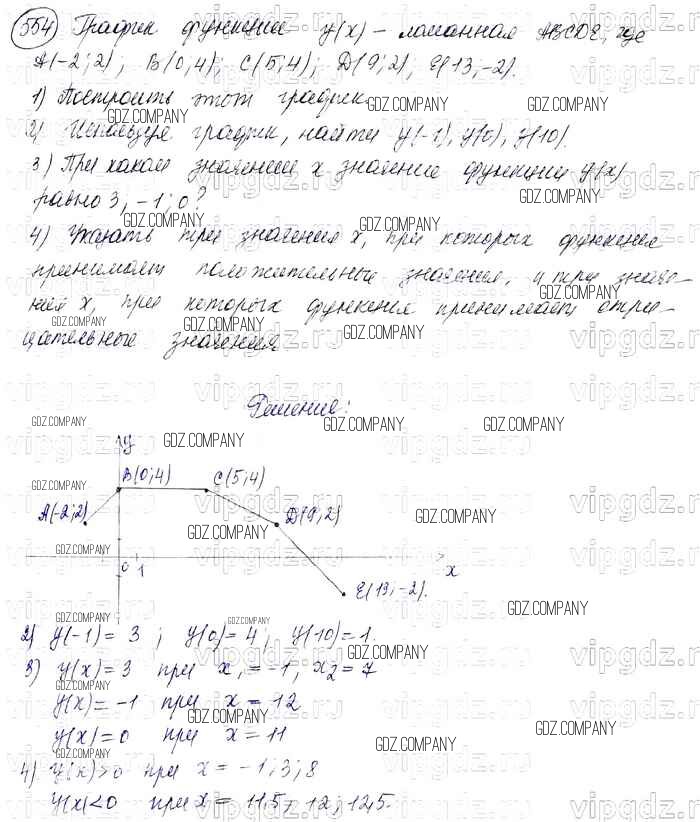 554 График функции y(x) - ломанная ABCDE, где
A(-2;2), B(0;4); C(5;4); D(9;2), E(13,-2).
1) Построить этот график
2) Используя график, найти y(-1), y(0), y(10).
3) При каком значении x значение функции y(x)
равно 3, -1; 0?
4) Указать три значения x, при которых функция
принимает положительные значения, и три значе-
ния x, при которых функция принимает отри-
цательные значения
Решение:
y
B(0;4)
C(5;4)
A(-2;2)
D(9;2)
0 1
x
E(13,-2).
2) y(-1)= 3 ; y(0)= 4, y(10)=1.
3) y(x)= 3 при x₁=-1, x₂=7
y(x)= -1 при x= 12
y(x)=0 при x= 11
4) y(x)>0 при x= -1;3;8
y(x)<0 при x= 11,5, 12, 12,5.
GDZ.COMPANY
vipgdz.ru